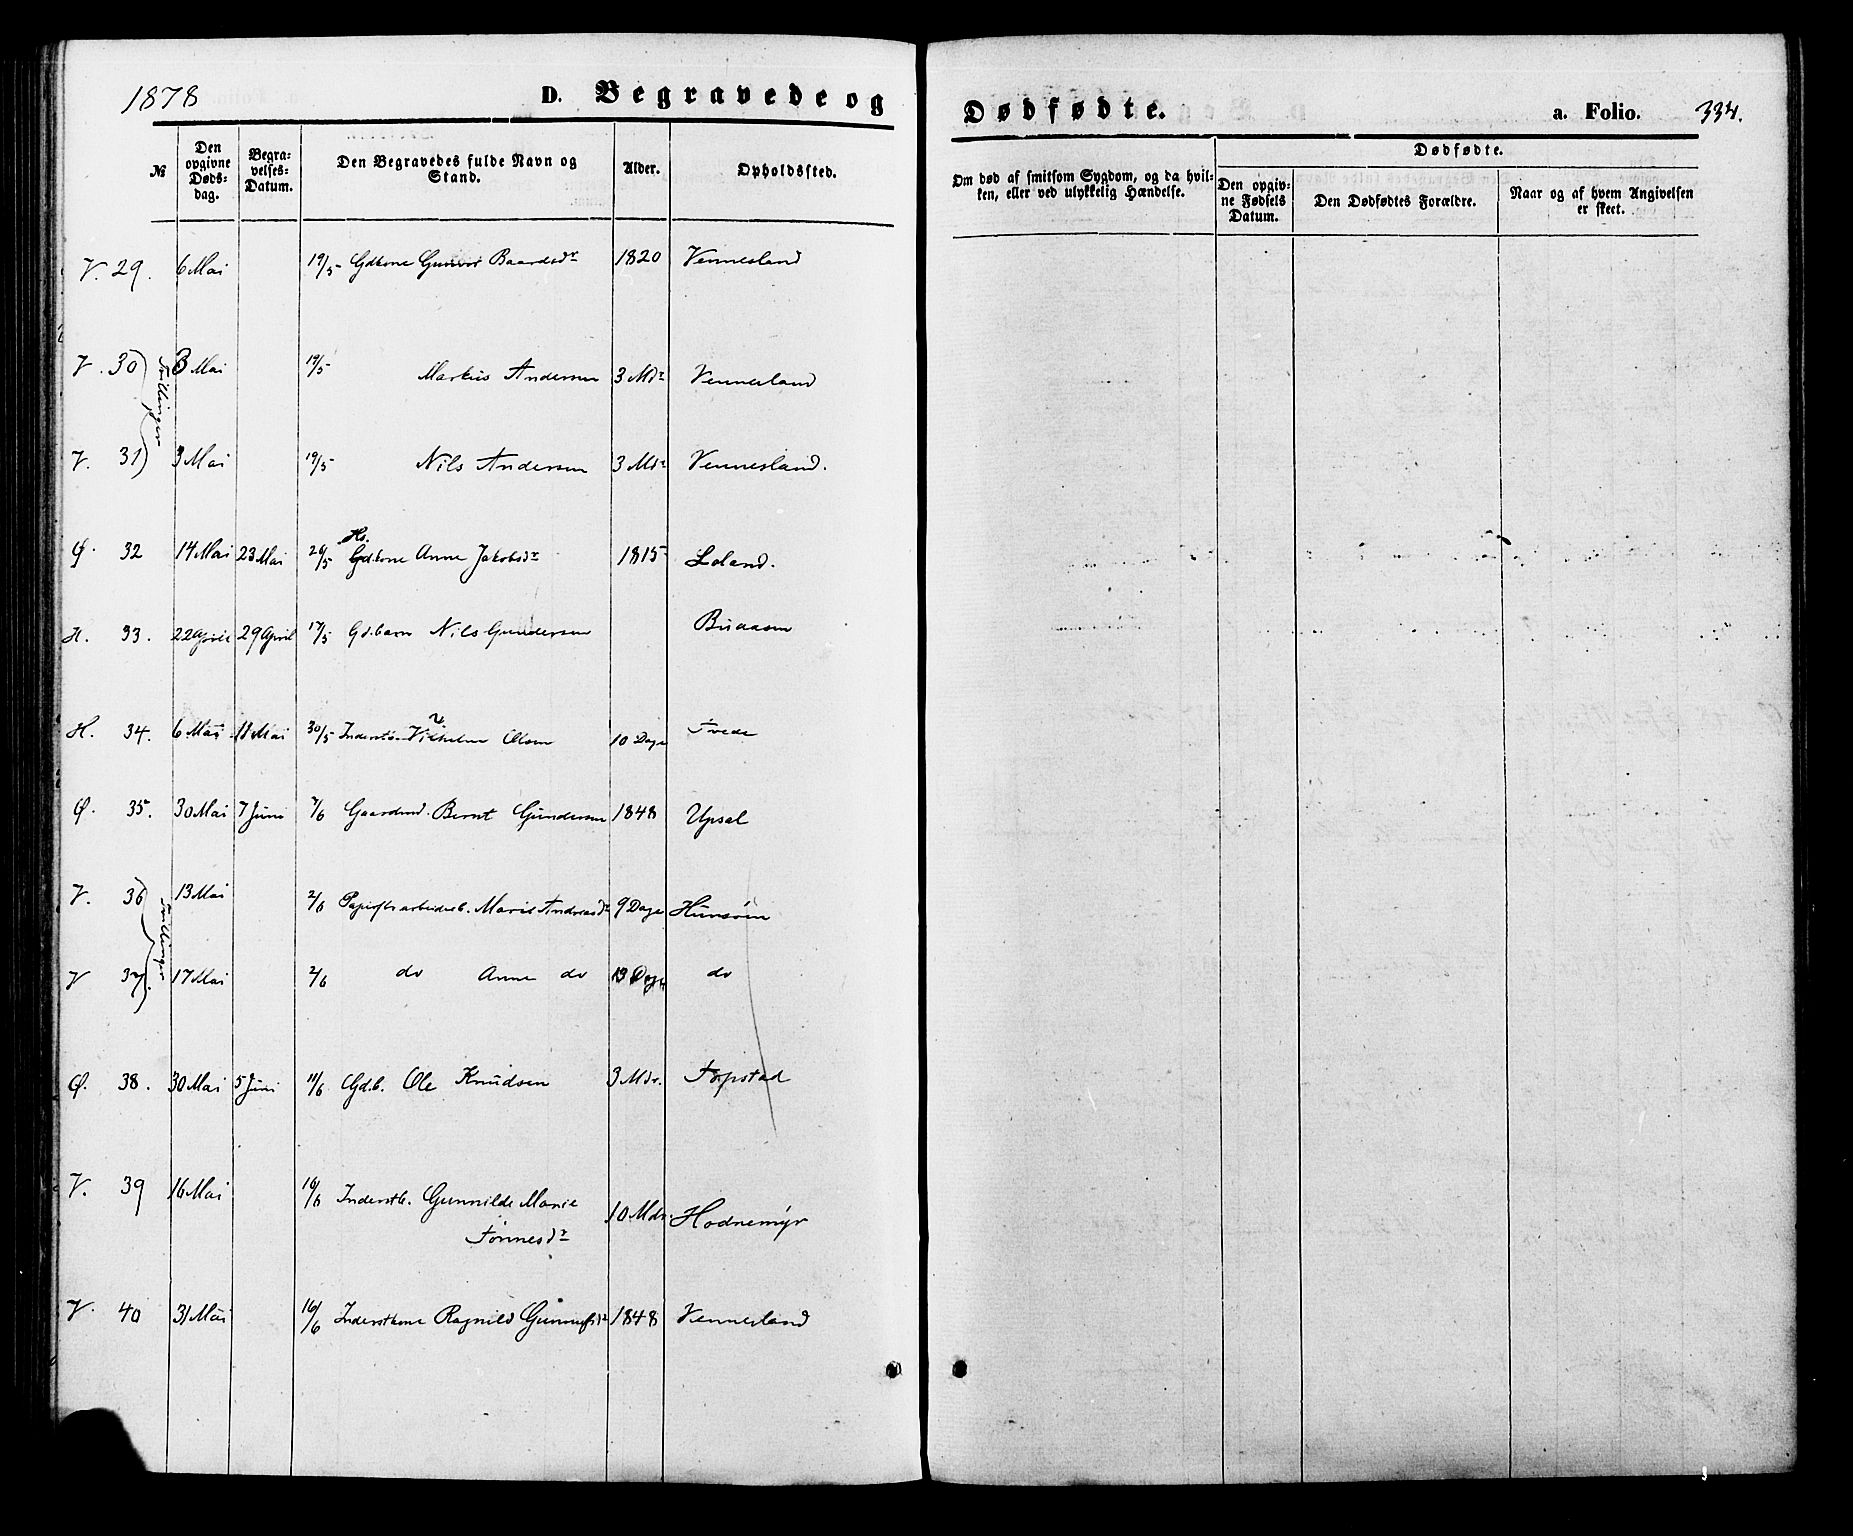 1878
D. Begravede og
Dødfødte.
a. Folio. 334.
№
Den opgivne Døds-dag.
Begra-velses-Datum.
Den Begravedes fulde Navn og Stand.
Alder.
Opholdssted.
Om død af smitsom Sygdom, og da hvil-
ken, eller ved ulykkelig Hændelse.
Dødfødte.
Den opgiv-ne Fødsels Datum.
Den Dødfødtes Forældre.
Naar og af hvem Angivelsen er skeet.
V. 29. 6 Mai 19/5 Gdkone Gunvor Baardsdr 1820 Vennesland
V. 30) 3 Mai 19/5 Markus Andersen 3 Mdr Vennesland
Tvillinger
V. 31) 3 Mai 19/5 Nils Andersen 3 Mdr Vennesland.
H.
Ø. 32 14 Mai 23 Mai 26/5 Gdkone Anne Jakobsdr 1815 Loland.
H. 33. 22 April 29 April 17/5 Gd.barn Nils Gundersen Buaasen
H. 34. 6 Mai 18 Mai 30/5 Vilhelm Olsen 10 Dage Tvede
Ø. 35. 30 Mai 7 Juni 7/6 Gaardmd. Bernt Gundersen 1848 Upsal
V. 36) 13 Mai 2/6 Marie Andreasdr 9 Dage Hunsøen
Tvillinger
V 37). 17 Mai 2/6 do Anne do 13 Dage do
Ø. 38. 30 Mai 5 Juni 11/6 Gdb. Ole Knudsen 3 Mdr. Fopstad
V. 39 16 Mai 16/6 Inderstb. Gunnilde Marie
Tønnesdr 10 Mdr. Hodnemyr
V. 40 31 Mai 16/6 Inderstkone Ragnild 1848 Vennesland